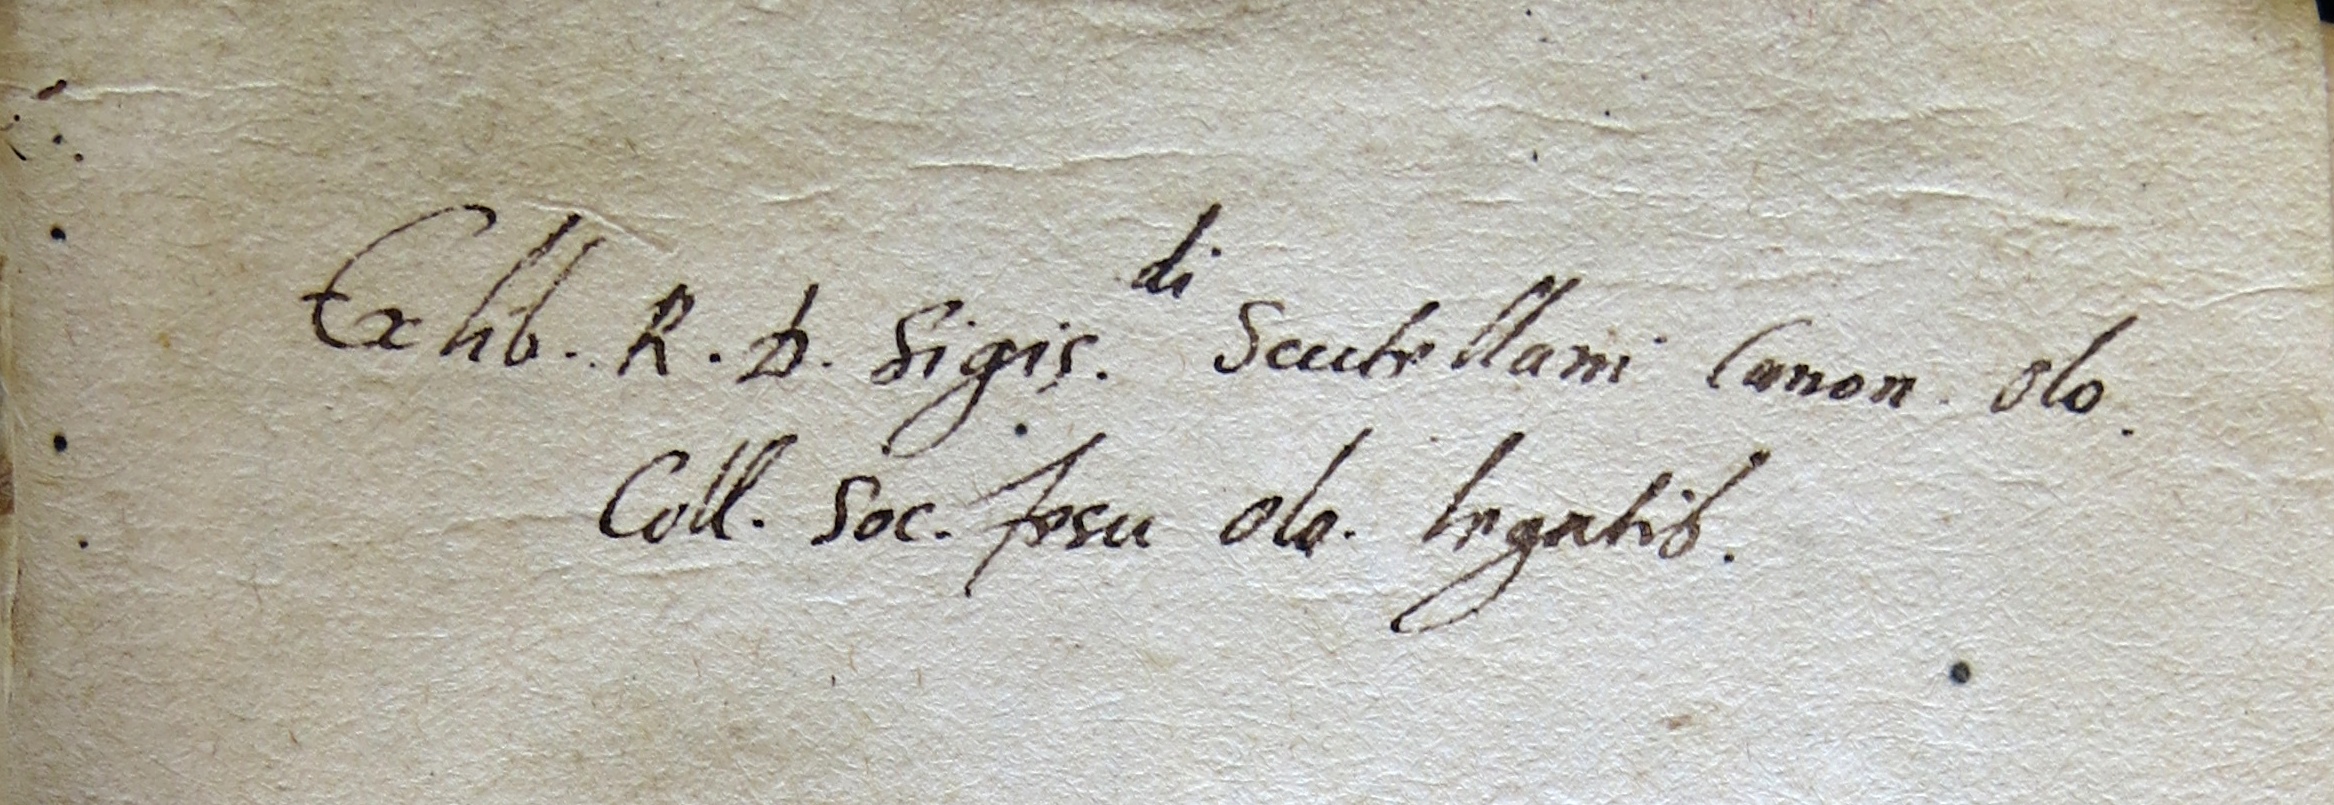 Ex lib. R. D. Sigis.di Scutellani Canon. Olo.
Coll. Soc. Jesu Olo. legatis.